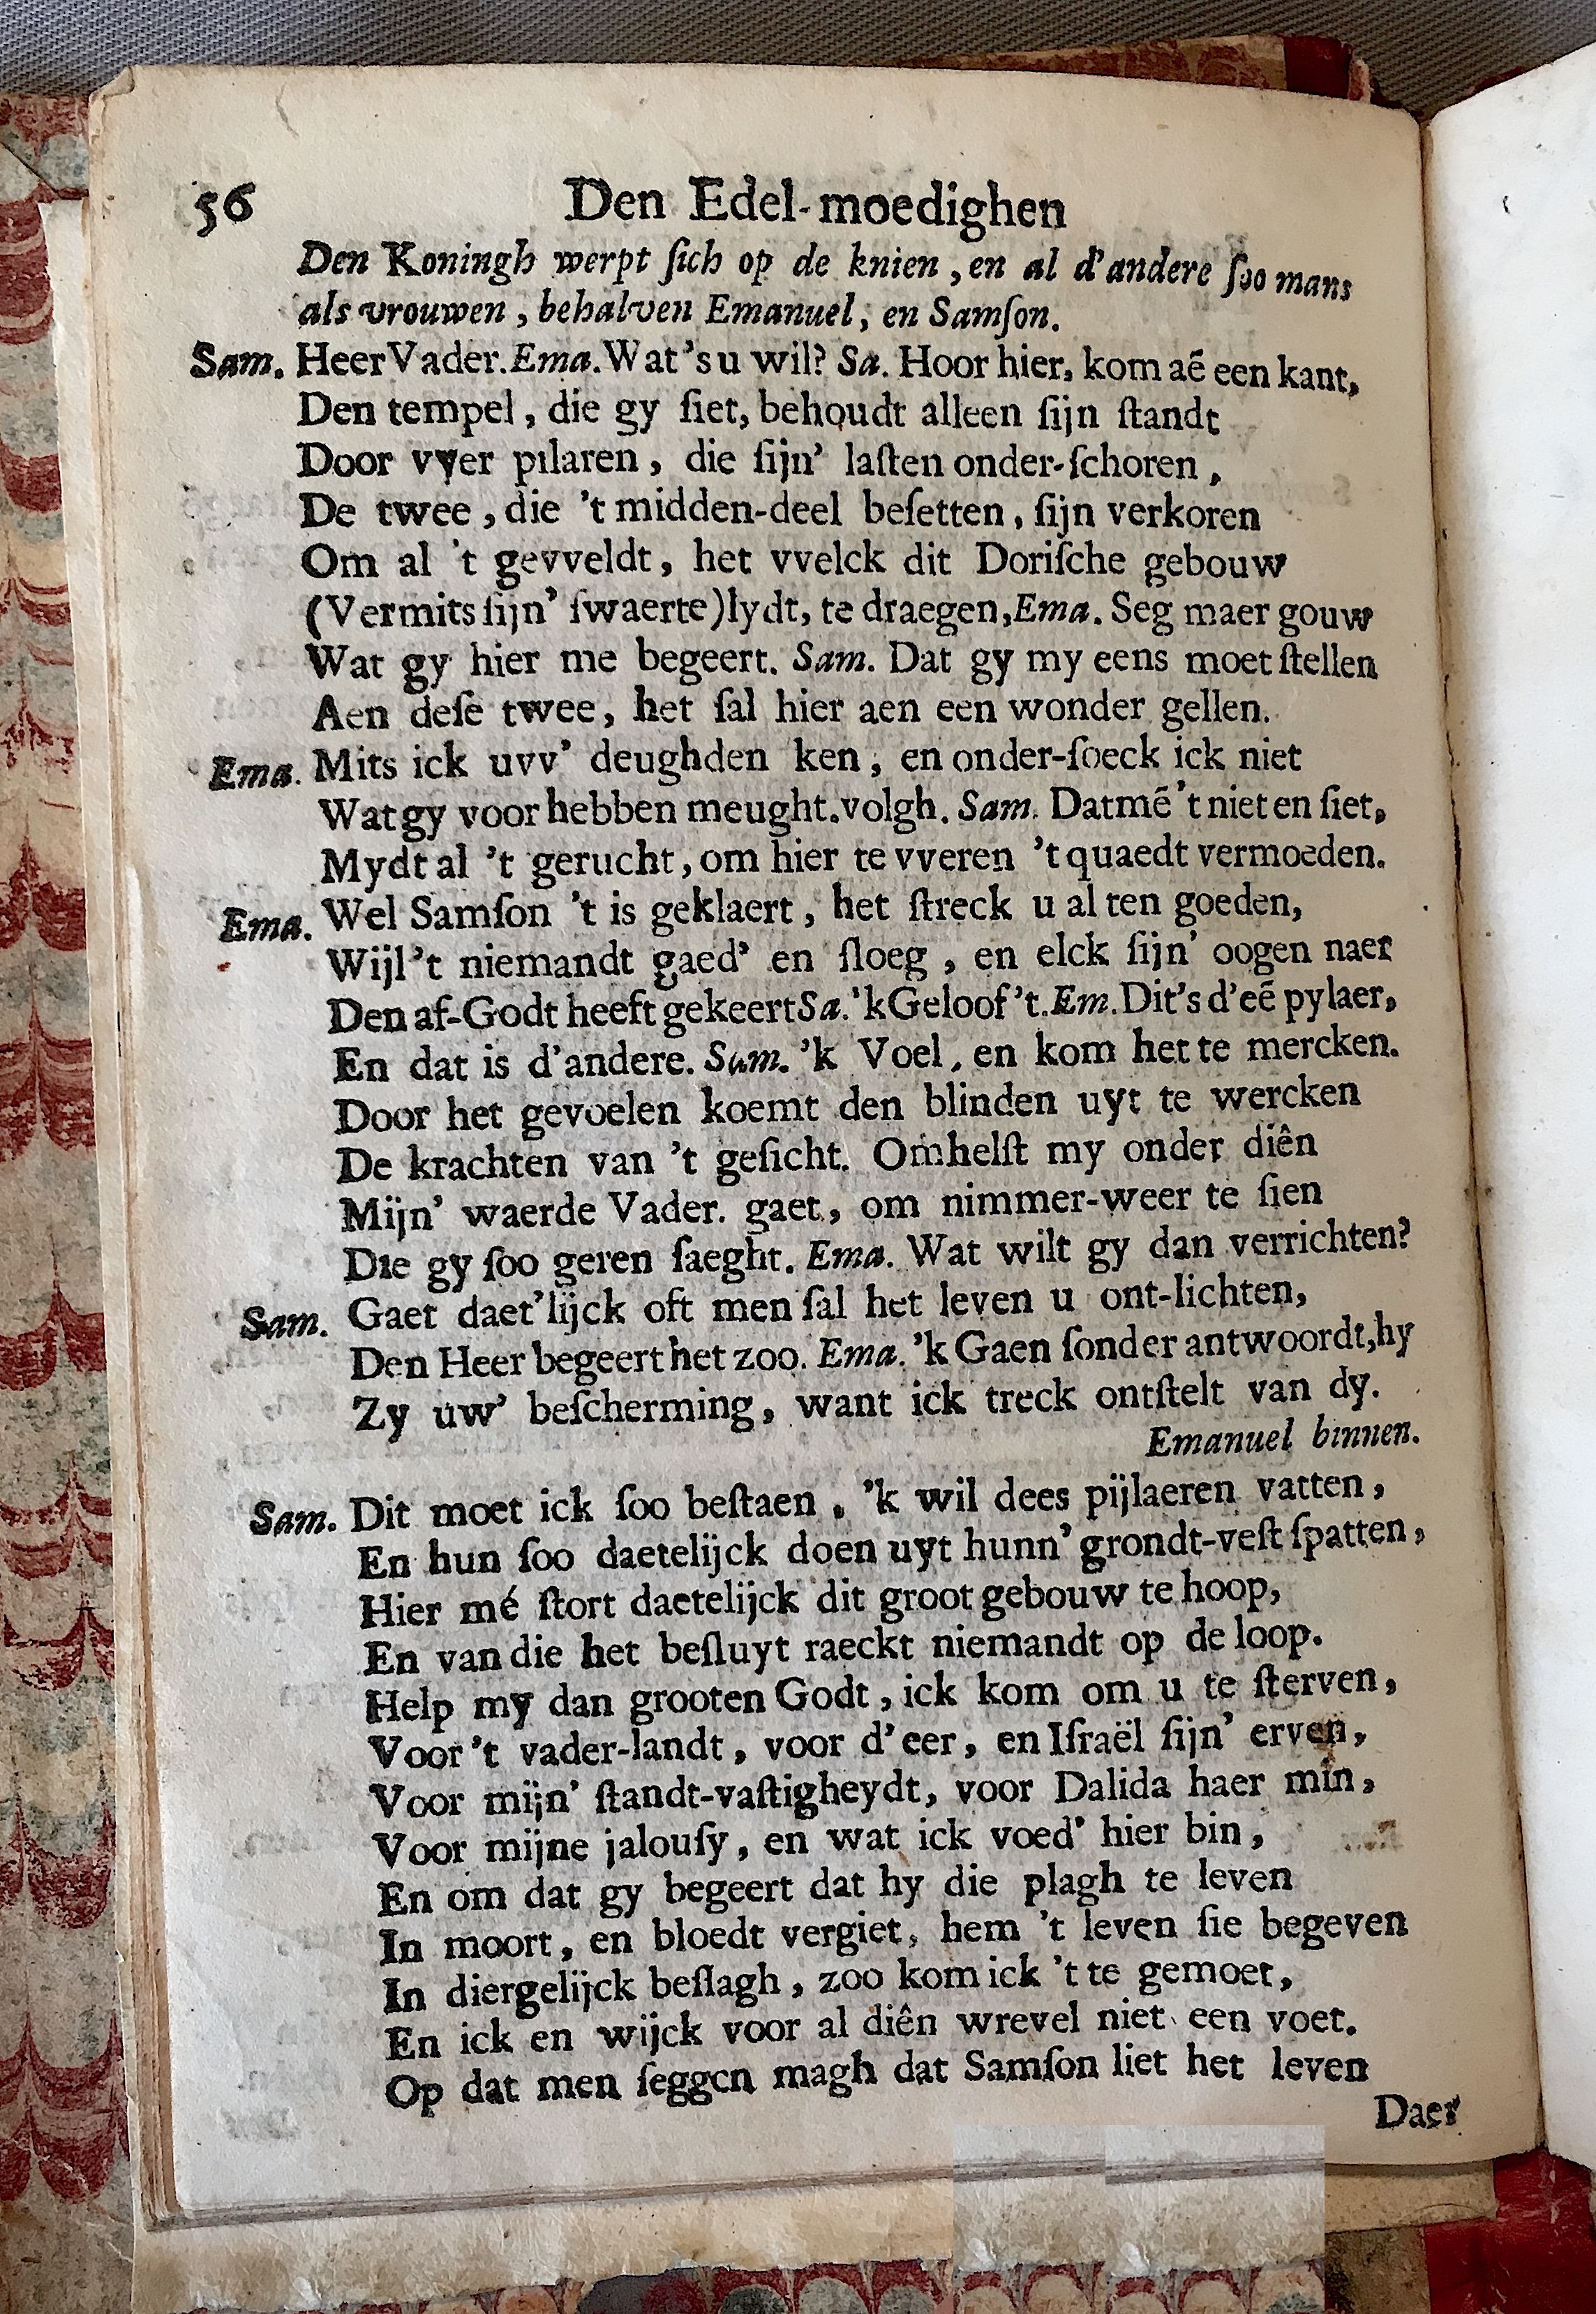 56 Den Edel-moedighen
Den Koningh werpt ſich op de knien, en al d'andere ſoo mans
als vrouwen, behalven Emanuel, en Samſon.
Sam. Heer Vader. Ema. Wat's u wil? Sa. Hoor hier, kom aē een kant,
Den tempel, die gy ſiet, behoudt alleen ſijn ſtandt
Door vyer pilaren, die ſijn' laſten onder-ſchoren,
De twee, die 't midden-deel beſetten, ſijn verkoren
Om al 't gevveldt, het vvelck dit Doriſche gebouw
(Vermits ſijn' ſwaerte) lydt, te draegen, Ema. Seg maer gouw
Wat gy hier me begeert. Sam. Dat gy my eens moet ſtellen
Aen deſe twee, het ſal hier aen een wonder gellen.
Ema. Mits ick uvv' deughden ken, en onder-ſoeck ick niet
Wat gy voor hebben meught. volgh. Sam. Datmē 't niet en ſiet,
Mydt al 't gerucht, om hier te vveren 't quaedt vermoeden.
Ema. Wel Samſon 't is geklaert, het ſtreck u al ten goeden,
Wijl't niemandt gaed' en ſloeg, en elck ſijn' oogen naer
Den af-Godt heeft gekeert Sa. 'k Geloof 't. Em. Dit's d'eē pylaer,
En dat is d'andere. Sam. 'k Voel, en kom het te mercken.
Door het gevoelen koemt den blinden uyt te wercken
De krachten van 't geſicht. Omhelſt my onder diên
Mijn' waerde Vader. gaet, om nimmer-weer te ſien
Die gy ſoo geren ſaeght. Ema. Wat wilt gy dan verrichten?
Sam. Gaet daet'lijck oft men ſal het leven u ont-lichten,
Den Heer begeert het zoo. Ema. 'k Gaen ſonder antwoordt, hy
Zy uw' beſcherming, want ick treck ontſtelt van dy.
Emanuel binnen.
Sam. Dit moet ick ſoo beſtaen, 'k wil dees pijlaeren vatten,
En hun ſoo daetelijck doen uyt hunn' grondt-veſt ſpatten,
Hier mé ſtort daetelijck dit groot gebouw te hoop,
En van die het beſluyt raeckt niemandt op de loop.
Help my dan grooten Godt, ick kom om u te ſterven,
Voor 't vader-landt, voor d'eer, en Iſraël ſijn' erven,
Voor mijn' ſtandt-vaſtigheydt, voor Dalida haer min,
Voor mijne jalouſy, en wat ick voed' hier bin,
En om dat gy begeert dat hy die plagh te leven
In moort, en bloedt vergiet, hem 't leven ſie begeven
In diergelijck beſlagh, zoo kom ick 't te gemoet,
En ick en wijck voor al diên wrevel niet een voet.
Op dat men ſeggen magh dat Samſon liet het leven
Daer